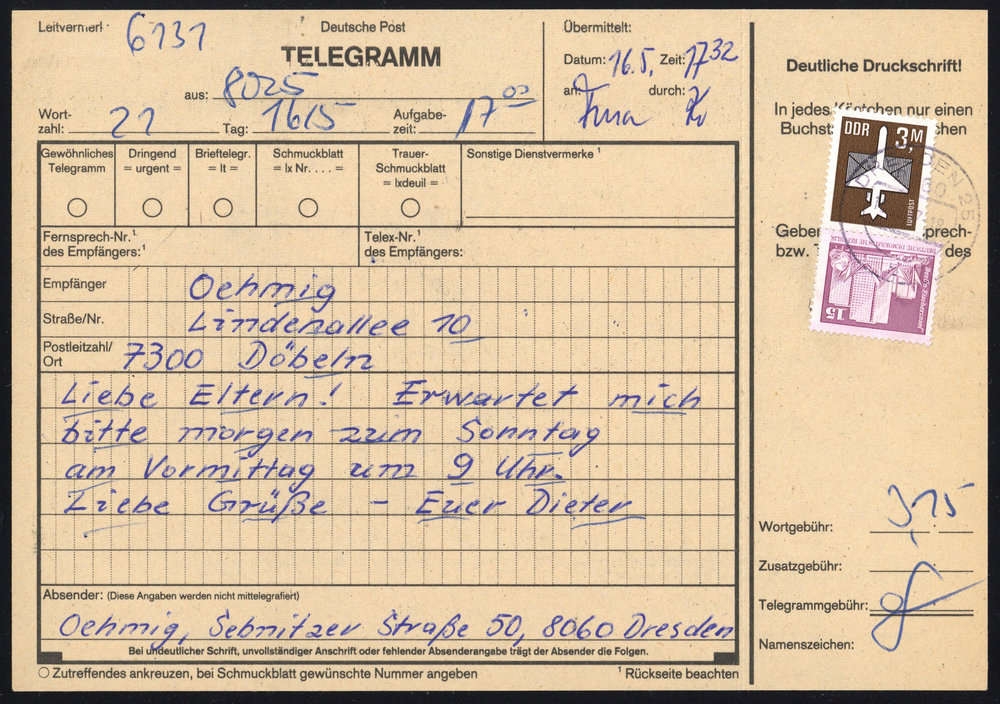 Leitvermerk 6131
Deutsche Post
TELEGRAMM
aus: 8025
Wort-
zahl: 21
Tag: 16/5
Aufgabe-
zeit: 17 00
Übermittelt:
Datum: 16.5, Zeit: 17 32
an durch:
Deutliche Druckschrift!
In jedes Kästchen nur einen
DDR 3,M
LUFTPOST
15
DEUTSCHE DEMOKRATISCHE REPUBLIK
Gewöhnliches
Telegramm
Dringend
= urgent =
Brieftelegr.
= lt =
Schmuckblatt
= lx Nr. . . . . =
Trauer-
Schmuckblatt
= lxdeuil =
Sonstige Dienstvermerke ¹
Fernsprech-Nr.¹
des Empfängers:¹
Telex-Nr.¹
des Empfängers:
Empfänger Oehmig
Straße/Nr. Lindenallee 10
Postleitzahl/
Ort 7300 Döbeln
Liebe Eltern! Erwartet mich
bitte morgen zum Sonntag
am Vormittag um 9 Uhr.
Liebe Grüße – Euer Dieter
Absender: (Diese Angaben werden nicht mittelegrafiert)
Oehmig, Sebnitzer Straße 50, 8060 Dresden
Bei undeutlicher Schrift, unvollständiger Anschrift oder fehlender Absenderangabe trägt der Absender die Folgen.
Zutreffendes ankreuzen, bei Schmuckblatt gewünschte Nummer angeben
¹ Rückseite beachten
Wortgebühr: 3,15
Zusatzgebühr:
Telegrammgebühr:
Namenszeichen: